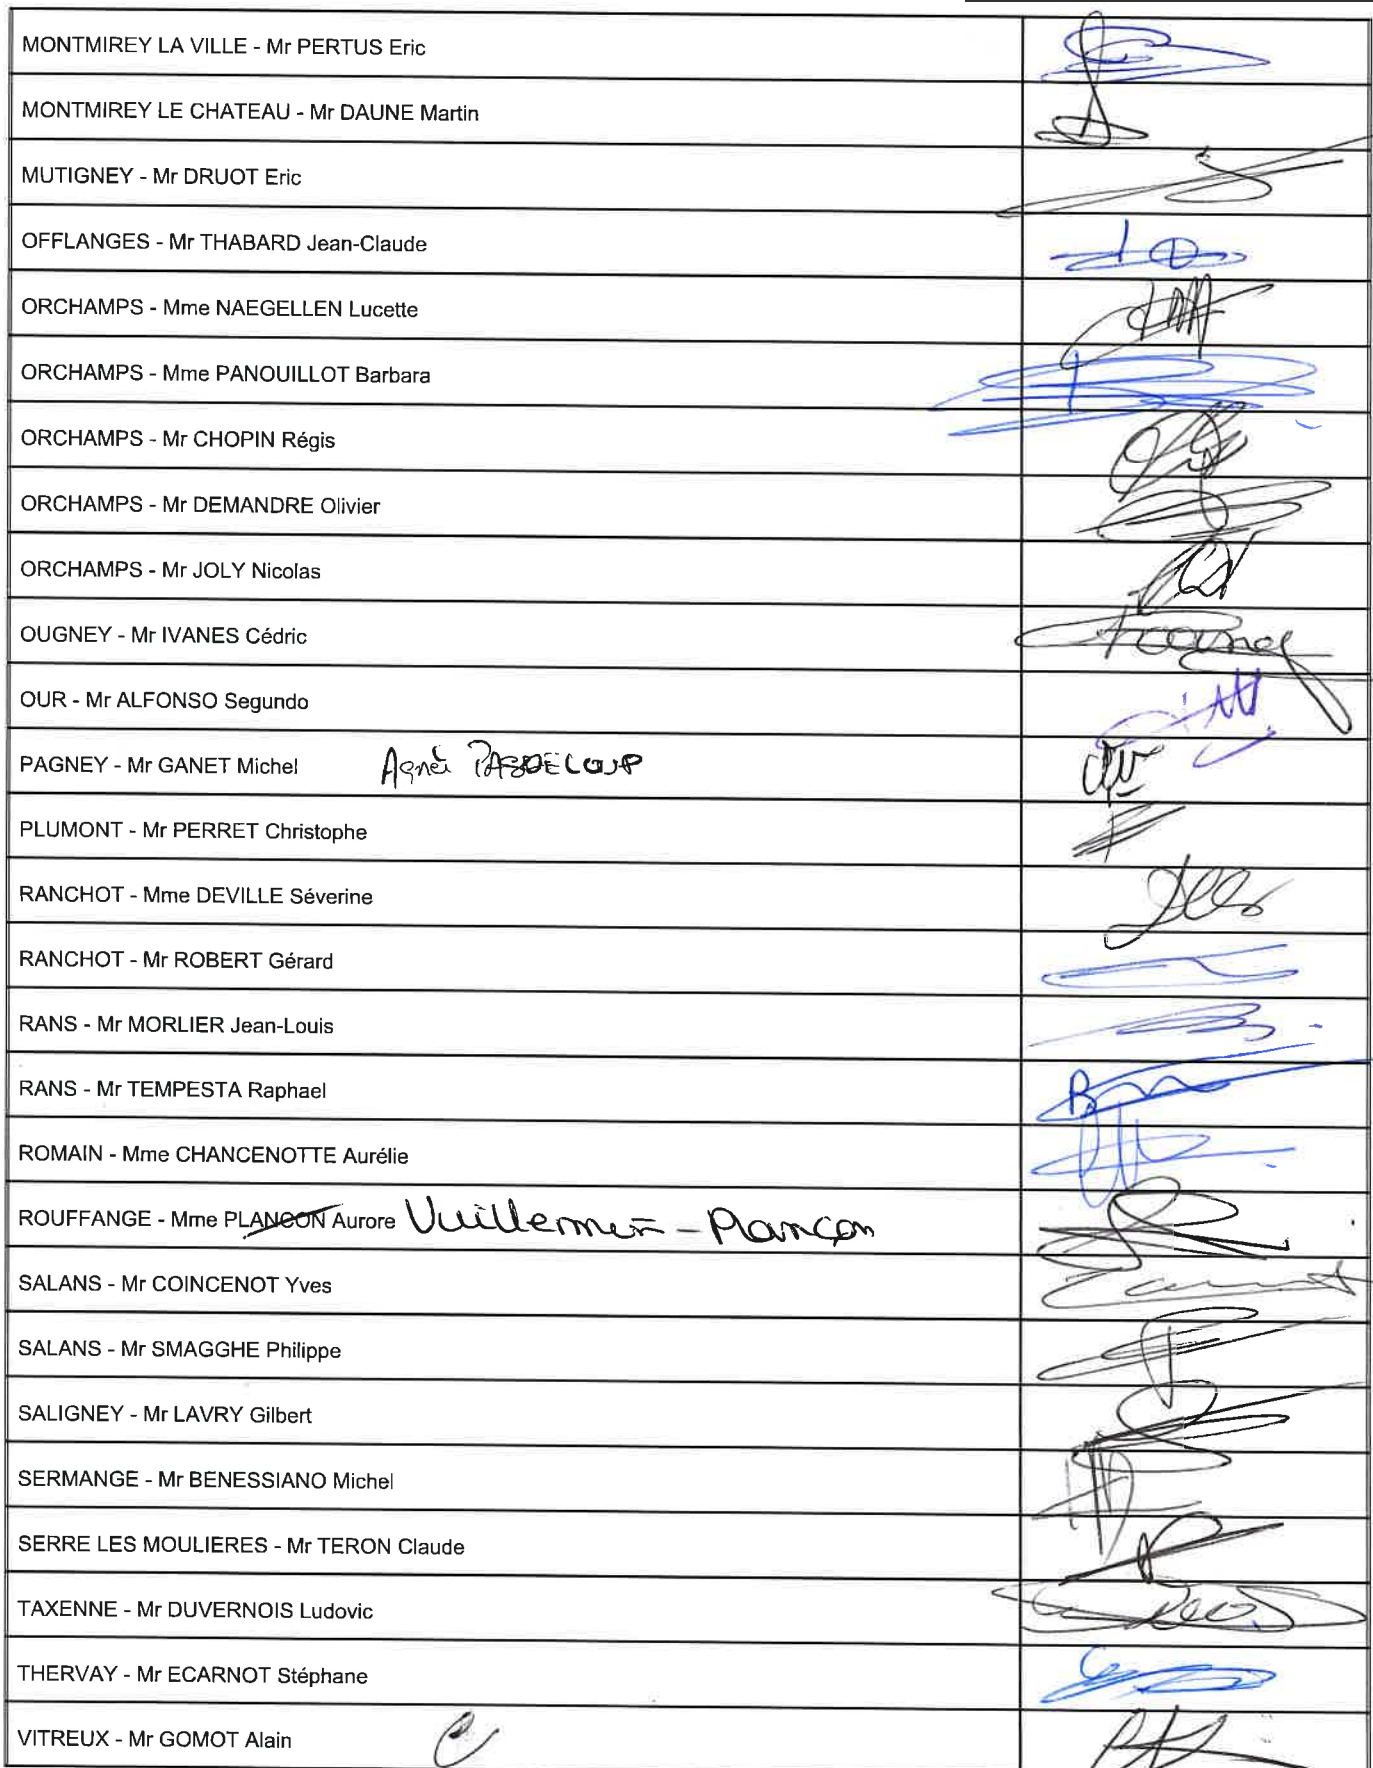 MONTMIREY LA VILLE - Mr PERTUS Eric
MONTMIREY LE CHATEAU - Mr DAUNE Martin
MUTIGNEY - Mr DRUOT Eric
OFFLANGES - Mr THABARD Jean-Claude
ORCHAMPS - Mme NAEGELLEN Lucette
ORCHAMPS - Mme PANOUILLOT Barbara
ORCHAMPS - Mr CHOPIN Régis
ORCHAMPS - Mr DEMANDRE Olivier
ORCHAMPS - Mr JOLY Nicolas
OUGNEY - Mr IVANES Cédric
OUR - Mr ALFONSO Segundo
PAGNEY - Mr GANET Michel Agnès PASDELOUP
PLUMONT - Mr PERRET Christophe
RANCHOT - Mme DEVILLE Séverine
RANCHOT - Mr ROBERT Gérard
RANS - Mr MORLIER Jean-Louis
RANS - Mr TEMPESTA Raphael
ROMAIN - Mme CHANCENOTTE Aurélie
ROUFFANGE - Mme PLANCON Aurore Vuillemin - Plançon
SALANS - Mr COINCENOT Yves
SALANS - Mr SMAGGHE Philippe
SALIGNEY - Mr LAVRY Gilbert
SERMANGE - Mr BENESSIANO Michel
SERRE LES MOULIERES - Mr TERON Claude
TAXENNE - Mr DUVERNOIS Ludovic
THERVAY - Mr ECARNOT Stéphane
VITREUX - Mr GOMOT Alain